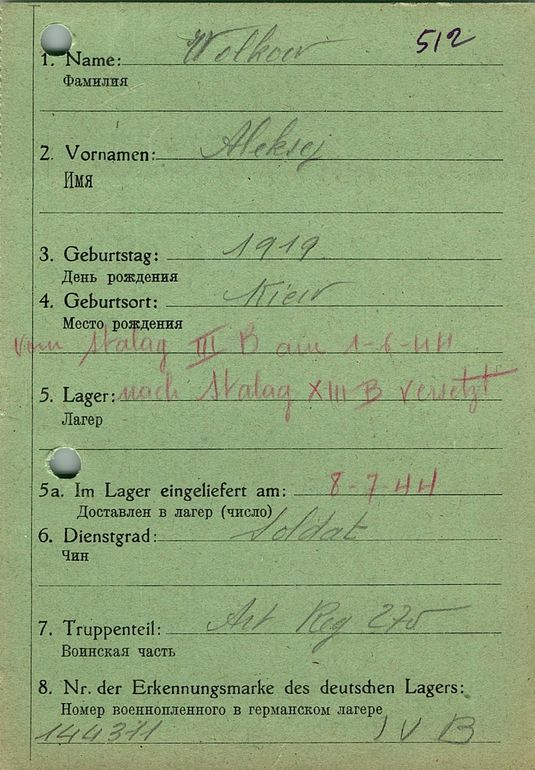 512
1. Name: Wolkow
Фамилия
2. Vornamen: Aleksej
Имя
3. Geburtstag: 1919
День рождения
4. Geburtsort: Kiew
Место рождения
vom Stalag III B am 1-6-44
5. Lager: nach Stalag XIII B versetzt
Лагер
5a. Im Lager eingeliefert am: 8-7-44
Доставлен в лагер (число)
6. Dienstgrad: Soldat
Чин
7. Truppenteil: Art Reg 275
Воинская часть
8. Nr. der Erkennungsmarke des deutschen Lagers:
Номер военнопленного в германском лагере
144311 IV B